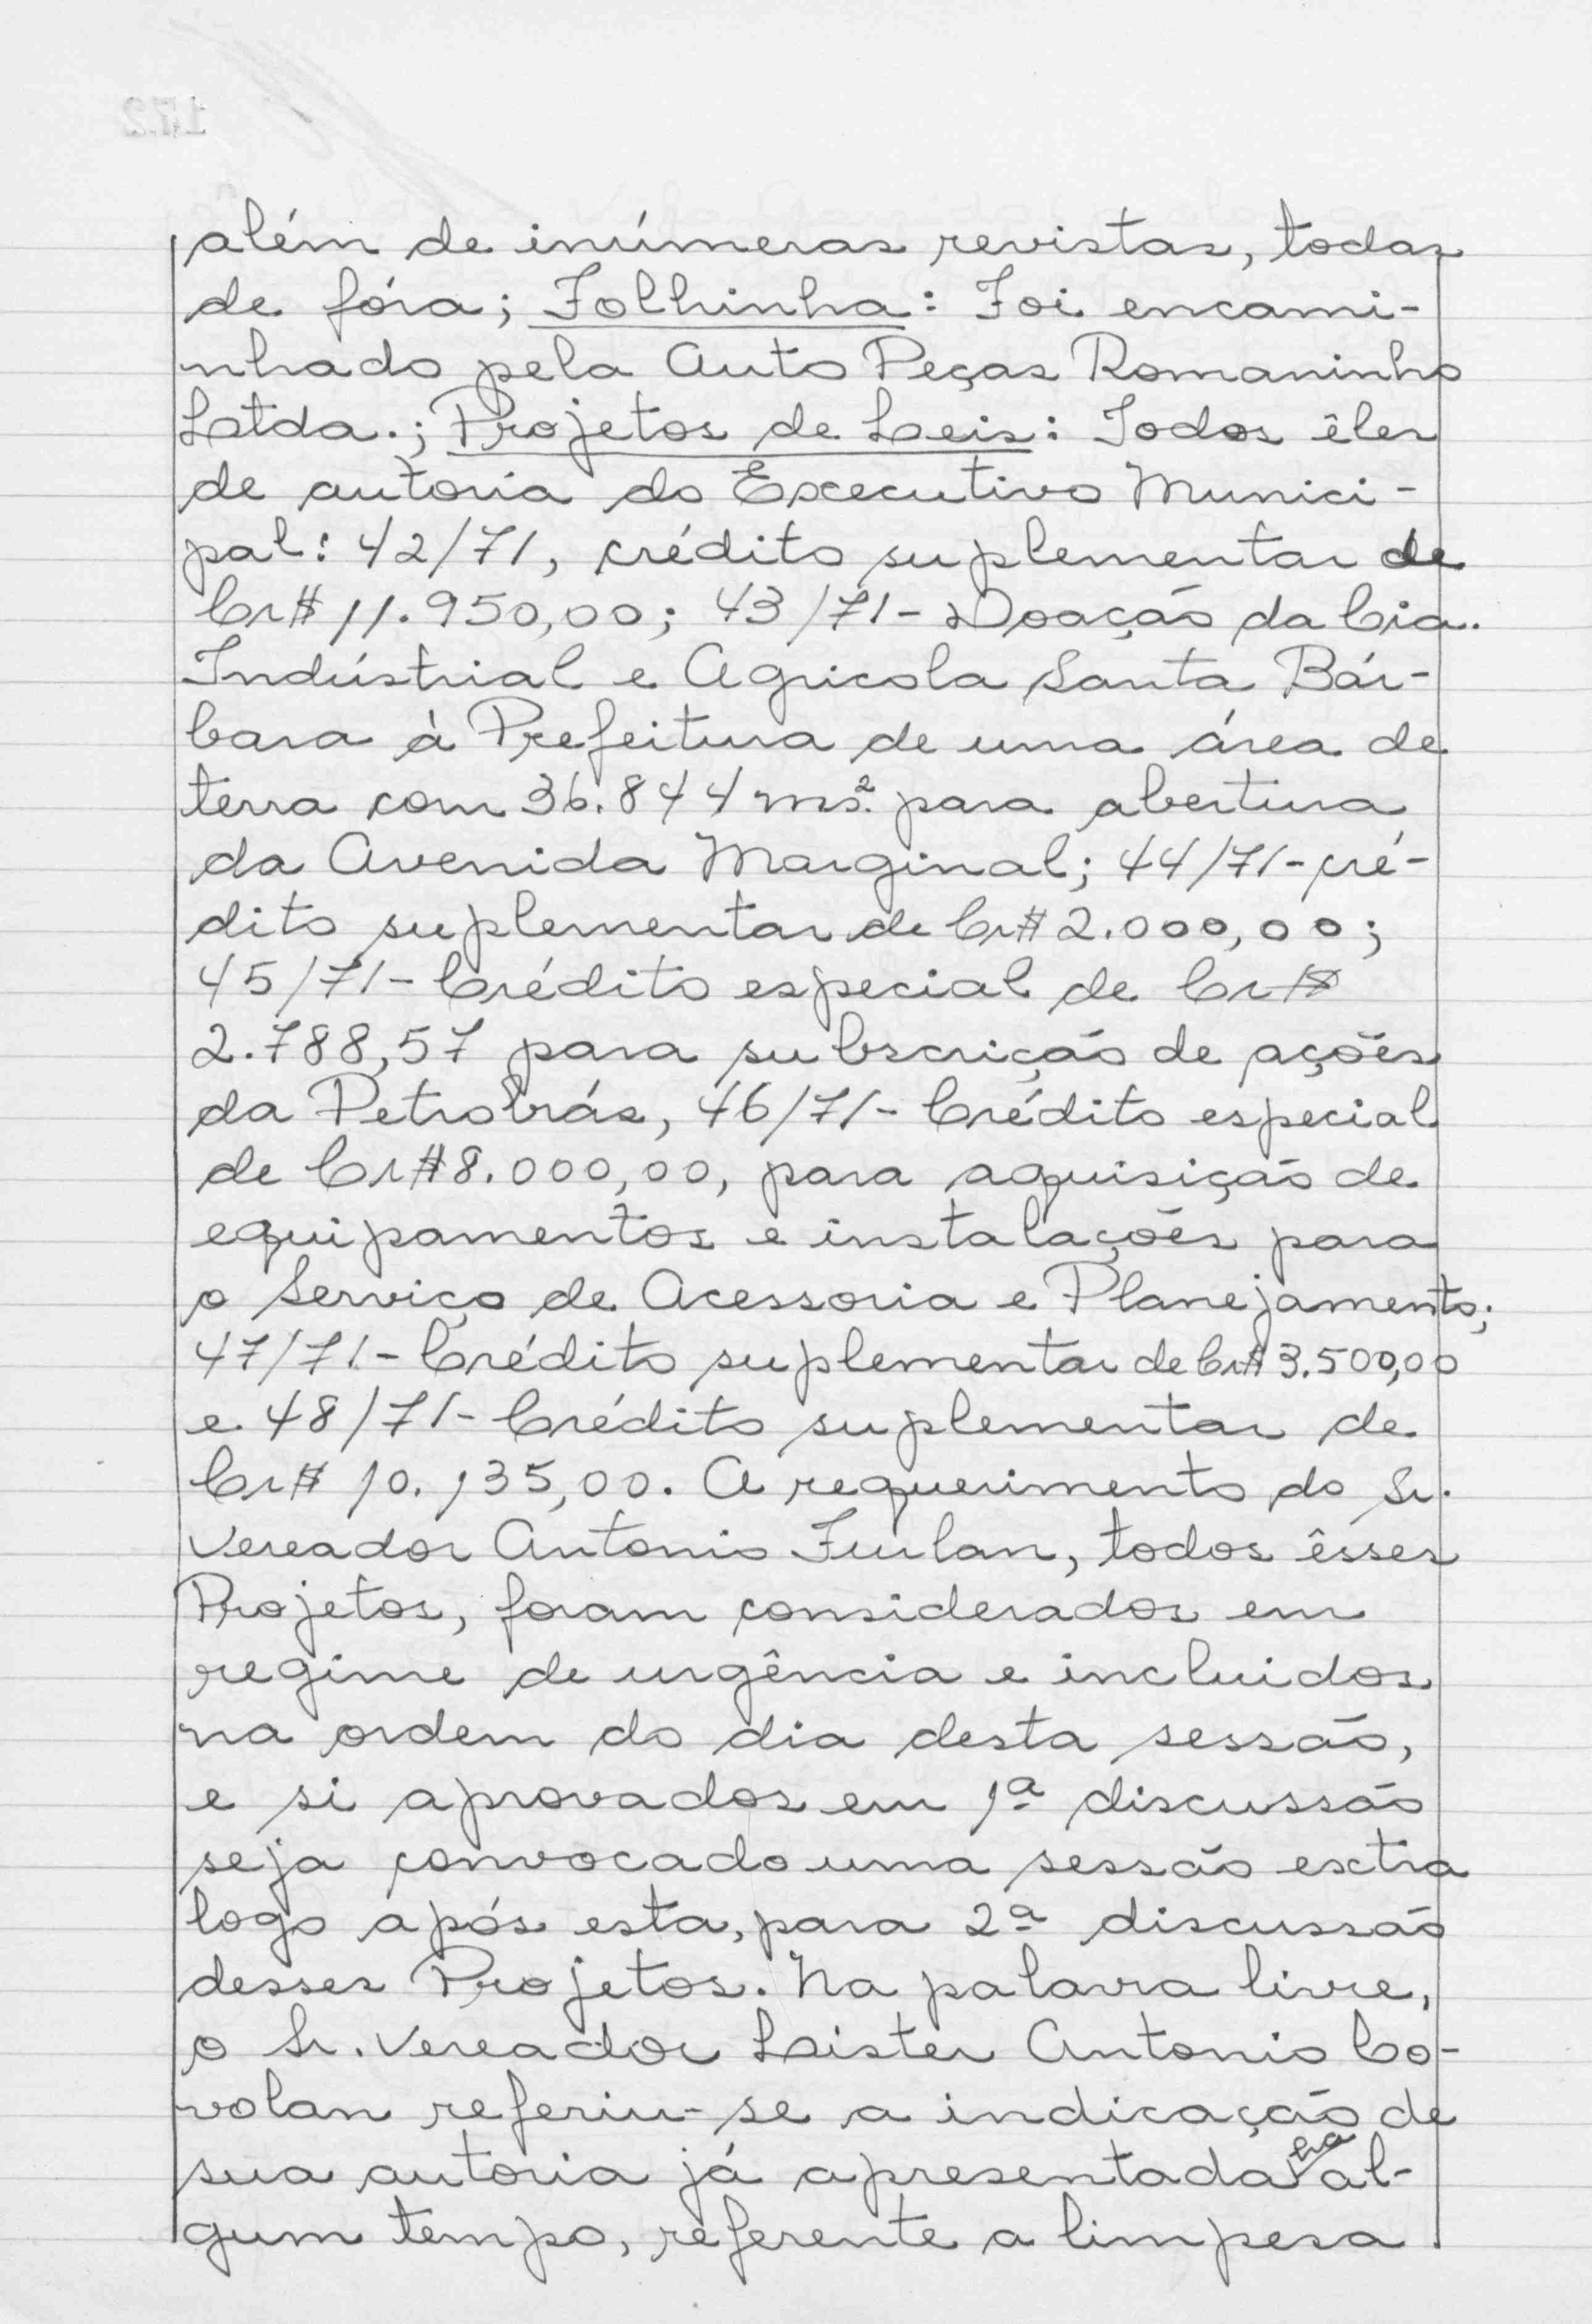 além de inúmeras revistas, todas
de fóra; Folhinha: Foi encami-
nhado pela Auto Peças Romaninho
Ltda.; Projetos de Leis: Todos êles
de autoria do Executivo Munici-
pal: 42/71, crédito suplementar de
Cr$ 11.950,00; 43/71- Doação da Cia.
Indústrial e Agricola Santa Bár-
bara à Prefeitura de uma área de
terra com 36.844 ms². para abertura
da Avenida Marginal; 44/71- cré-
dito suplementar de Cr$ 2.000,00;
45/71- Crédito especial de Cr$
2.788,57 para subscrição de ações
da Petrobrás, 46/71- Crédito especial
de Cr$ 8.000,00, para aquisição de
equipamentos e instalações para
o Serviço de Acessoria e Planejamento;
47/71- Crédito suplementar de Cr$ 3.500,00
e 48/71- Crédito suplementar de
Cr$ 10.135,00. A requerimento do Sr.
Vereador Antonio Furlan, todos êsses
Projetos, foram considerados em
regime de urgência e incluidos
na ordem do dia desta sessão,
e si aprovados em 1ª discussão
seja convocado uma sessão extra
logo após esta, para 2ª discussão
desses Projetos. Na palavra livre,
o Sr. Vereador Lister Antonio Co-
volan referiu-se a indicação de
sua autoria já apresentada ha al-
gum tempo, referente a limpesa